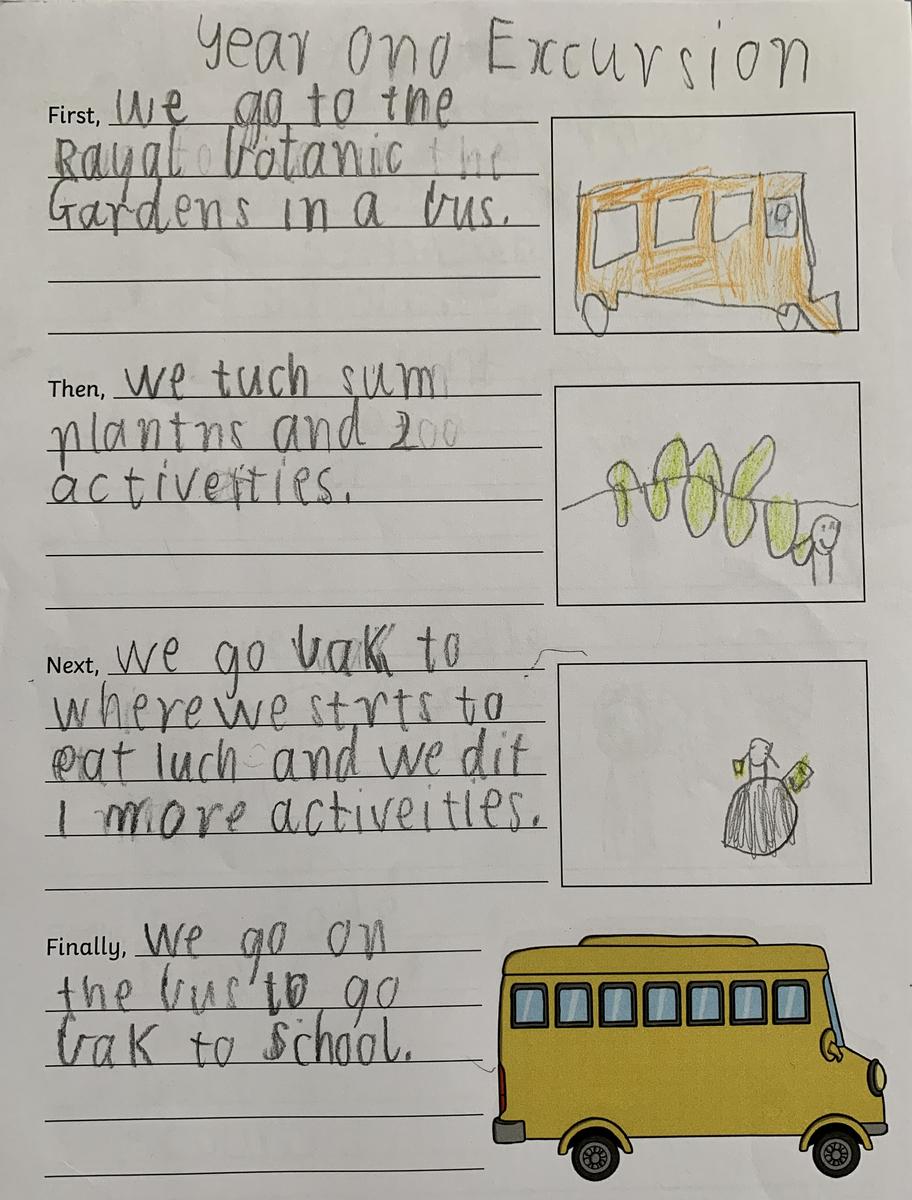 Year Ono Excursion
First, we go to the
Rayal botanic
Gardens in a bus.
Then, we tuch sum
plantns and 2
activeities.
Next, we go bak to
where we strts to
eat luch and we dit
1 more activeities.
Finally, we go on
the bus to go
bak to School.